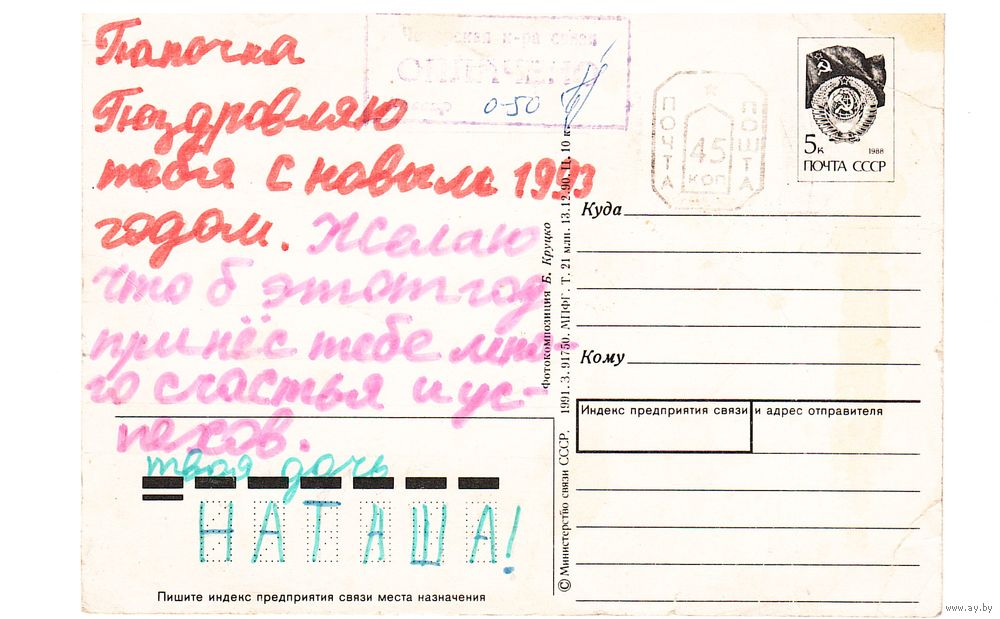 Папочка
Поздровляю
тебя с новым 1993
годом. Желаю
что б этот год
принёс тебе мно-
го счастья и ус-
пехов.
твоя дочь
НАТАША!
Пишите индекс предприятия связи места назначения
к-ра связи
ОПЛАЧЕНО
0-50
ПОЧТА
45
коп
ПОШТА
5к
1988
ПОЧТА СССР
Куда
Кому
Индекс предприятия связи и адрес отправителя
Фотокомпозиция Б. Круцко
© Министерство связи СССР. 1991. З. 91750. МПФГ. Т. 21 млн. 13.12.90. Ц. 10 к.
www.ay.by